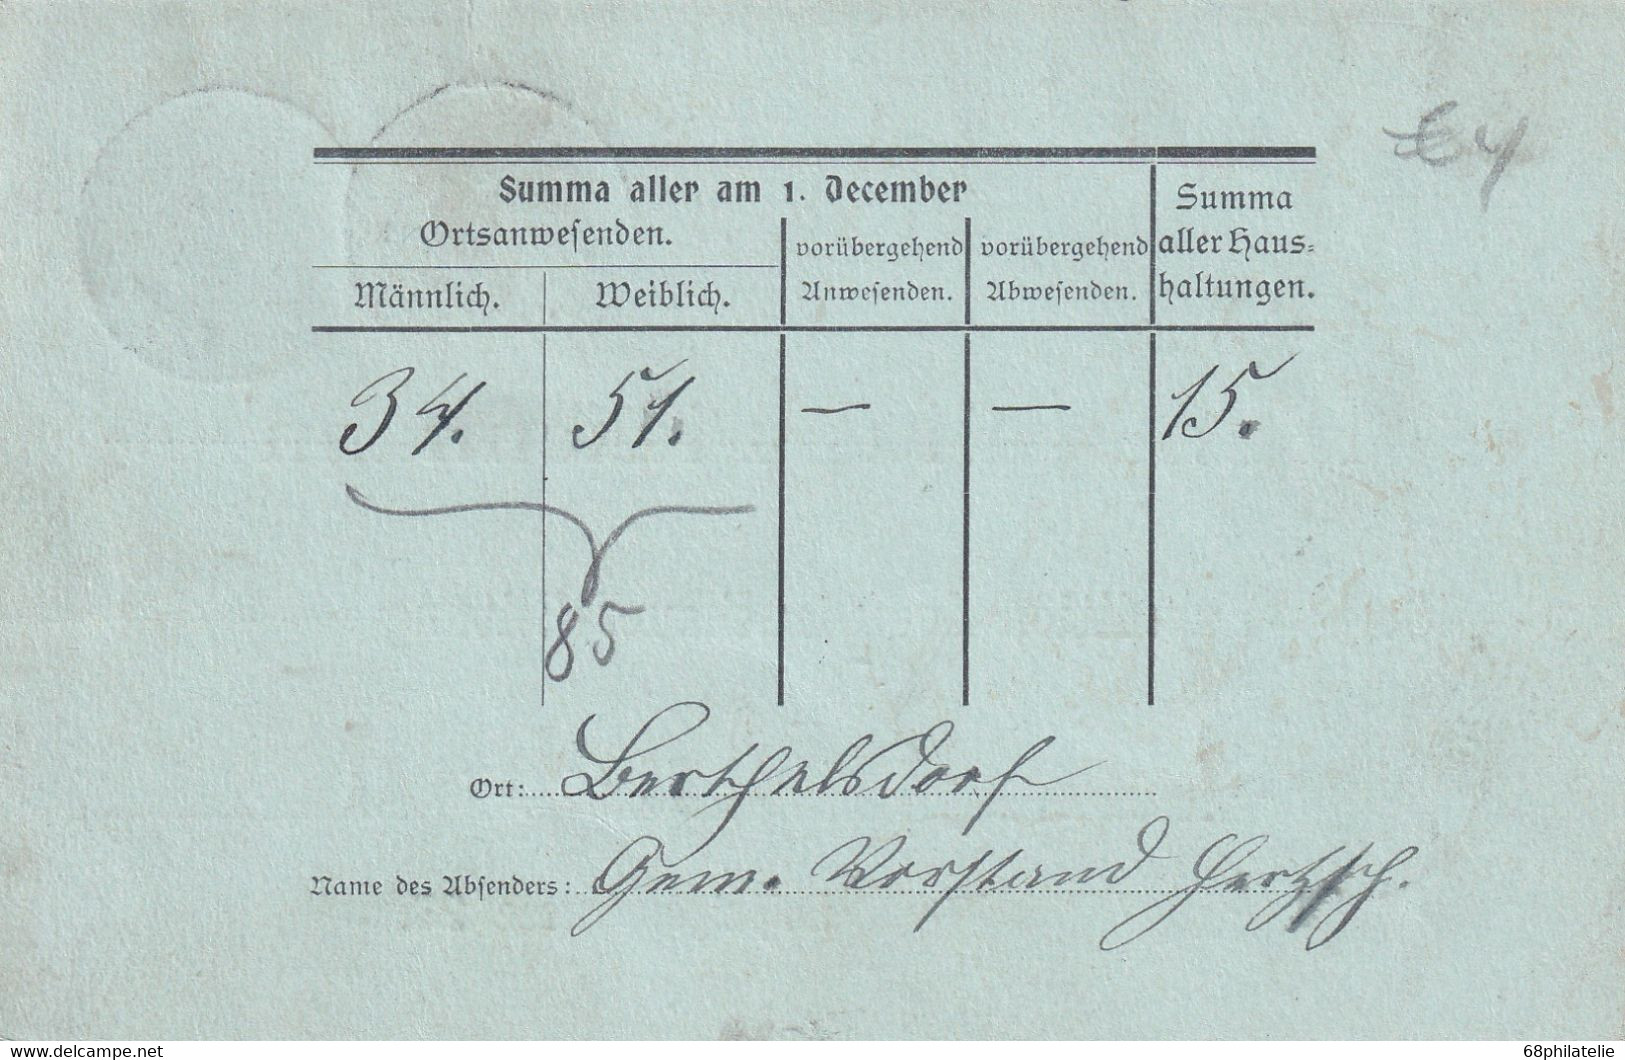 Summa aller am 1. December
Ortsanwesenden.
Männlich.
Weiblich.
vorübergehend
Anwesenden.
vorübergehend
Abwesenden.
Summa
aller Haus-
haltungen.
34. 51. — — 15.
85
Ort: Berthelsdorf
Name des Absenders: Gem. Vorstand Hertzsch.
delcampe.net
68philatelie